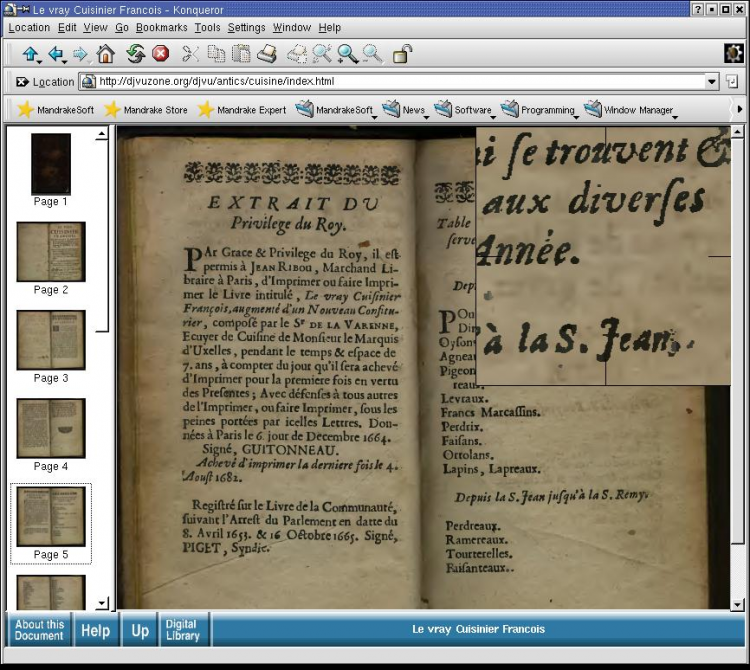 Le vray Cuisinier Francois - Konqueror
Location Edit View Go Bookmarks Tools Settings Window Help
Location http://djvuzone.org/djvu/antics/cuisine/index.html
MandrakeSoft Mandrake Store Mandrake Expert MandrakeSoft News Software Programming Window Manager
Page 1
Page 2
Page 3
Page 4
Page 5
EXTRAIT DU
Privilege du Roy.
PAr Grace & Privilege du Roy, il est
permis à JEAN RIBOU, Marchand Li-
braire à Paris, d'Imprimer ou faire Impri-
mer le Livre intitulé, Le vray Cuiſinier
François, augmenté d'un Nouveau Confitu-
rier, composé par le Sr DE LA VARENNE,
Ecuyer de Cuiſine de Monſieur le Marquis
d'Uxelles, pendant le temps & eſpace de
7. ans, à compter du jour qu'il ſera achevé
d'Imprimer pour la premiere fois en vertu
des Preſentes; Avec défenſes à tous autres
de l'Imprimer, ou faire Imprimer, ſous les
peines portées par icelles Lettres. Don-
nées à Paris le 6. jour de Decembre 1664.
Signé, GUITONNEAU.
Achevé d'imprimer la derniere fois le 4.
Aouſt 1682.
Regiſtré ſur le Livre de la Communauté,
ſuivant l'Arreſt du Parlement en datte du
8. Avril 1653. & 16 Octobre 1665. Signé,
PIGET, Syndic.
Table
ſerve
Dep
POu
Din
Oyſon
Agnea
Pigeon
teaux
Levraux.
Francs Marcaſſins.
Perdrix.
Faiſans.
Ortolans.
Lapins, Lapreaux.
Depuis la S. Jean juſqu'à la S. Remy.
Perdreaux.
Ramereaux.
Tourterelles.
Faiſanteaux.
i ſe trouvent &
aux diverſes
Année.
à la S. Jean.
About this
Document
Help
Up
Digital
Library
Le vray Cuisinier Francois